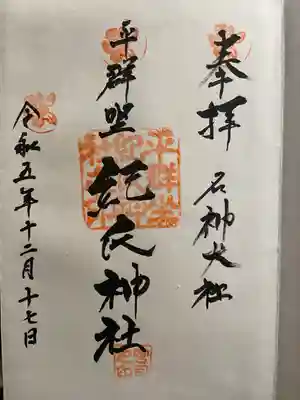 奉拝 名神大社
平群坐 紀氏神社
令和五年十二月十七日